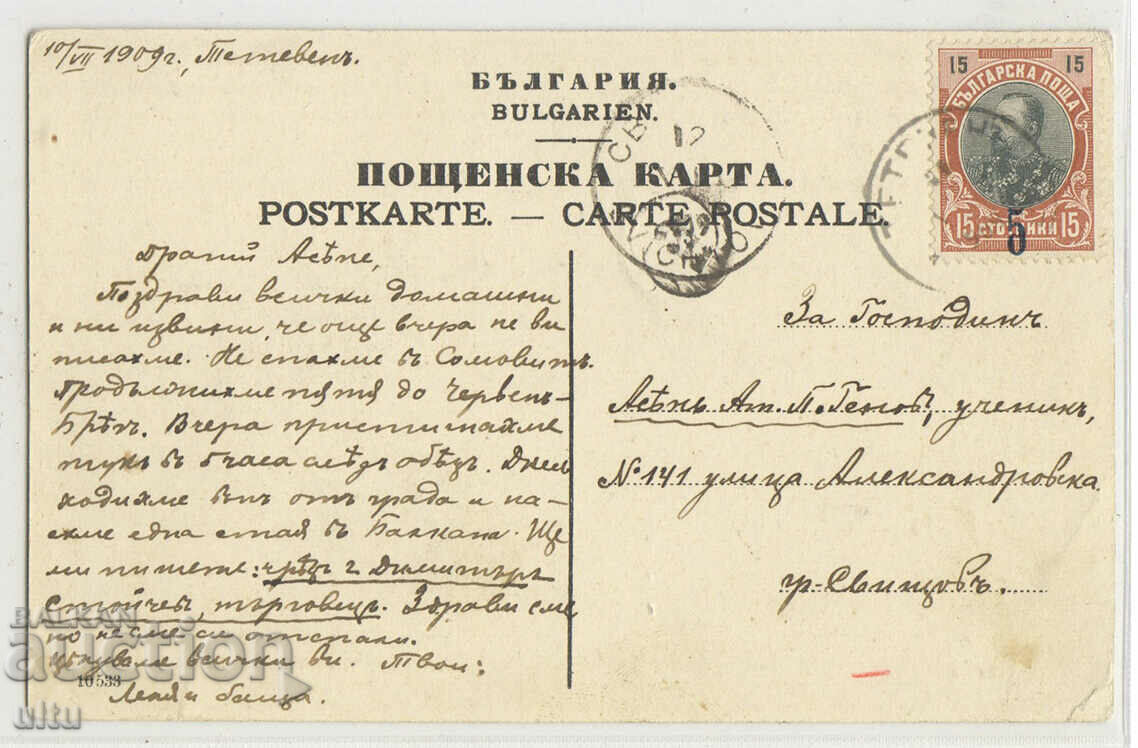 10/VII 1909 г., Тетевенъ.
БЪЛГАРИЯ.
BULGARIEN.
ПОЩЕНСКА КАРТА.
POSTKARTE. — CARTE POSTALE.
15 15
БЪЛГАРСКА ПОЩА
15 СТОТИНКИ 15
5
СВИ
12
Драгий Асѣне,
Поздрави всички домашни
и ни извини, че още вчера не ви
писахме. Не спахме въ Сомовитъ.
продължихме пѫтя до Червенъ-
Брѣгъ. Вчера пристигнахме
тукъ въ 5 часа слѣдъ обѣдъ. Днес
ходихме вънъ отъ града и на-
ехме една стая въ Балкана. Ще
ми пишете: чрѣзъ г. Димитъръ
Стойчевъ, търговецъ. Здрави сме
но не сме си отспали.
Цѣлуваме всички ви. Твои:
и баща.
10533
За Господинъ
Асѣнъ Ат. П. Геновъ, ученикъ,
№ 141 улица Александровска
гр. Свищовъ.
BALKAN
auction
ultu